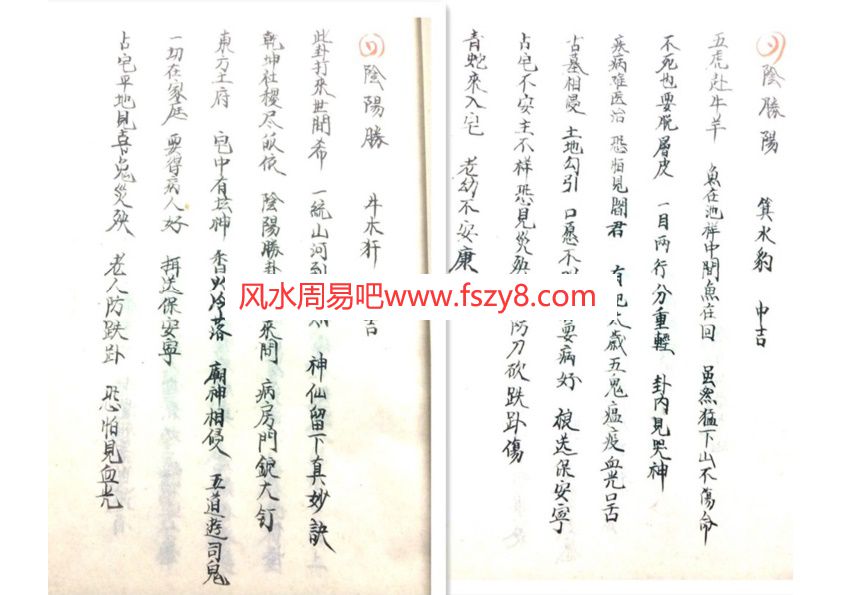 陰勝陽 箕水豹 中吉
五虎赴牛羊 魚在池 中間魚在回 虽然猛下山不傷命
不死也要脱層皮 一目両行分重輕 卦内見咒神
疾病难医治 恐怕見閻君 有犯太歳五鬼瘟疫血光口舌
古墓相侵 土地勾引 口愿不 要病好 送保安寧
占宅不安主不祥恐見災殃 防刀砍跌卦傷
青蛇來入宅 老幼不安康
陰陽勝 牛木犴 吉
此卦打來世間希 一統山河到 神仙留下真妙訣
乾坤社稷尽皈依 陰陽勝卦 來問 病房門 大釘
東方土府 宅中有坛神 香火冷落 廟神相侵 五道遊司鬼
一切在家庭 要得病人好 送保安寧
占宅平地見喜鬼災殃 老人防跌卦 恐怕見血光
风水周易吧www.fszy8.com